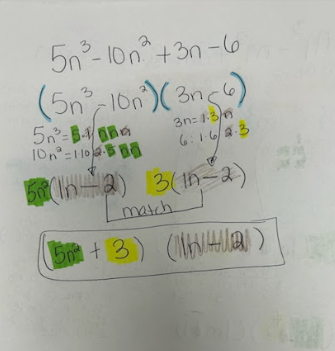 5n³-10n²+3n-6
(5n³-10n²)(3n-6)
5n³=5·1 n n n
3n=1·3 n
10n²=1·10 2·5 n n
6:1·6 2·3
5n²(1n-2) 3(1n-2)
match
(5n²+3) (1n-2)